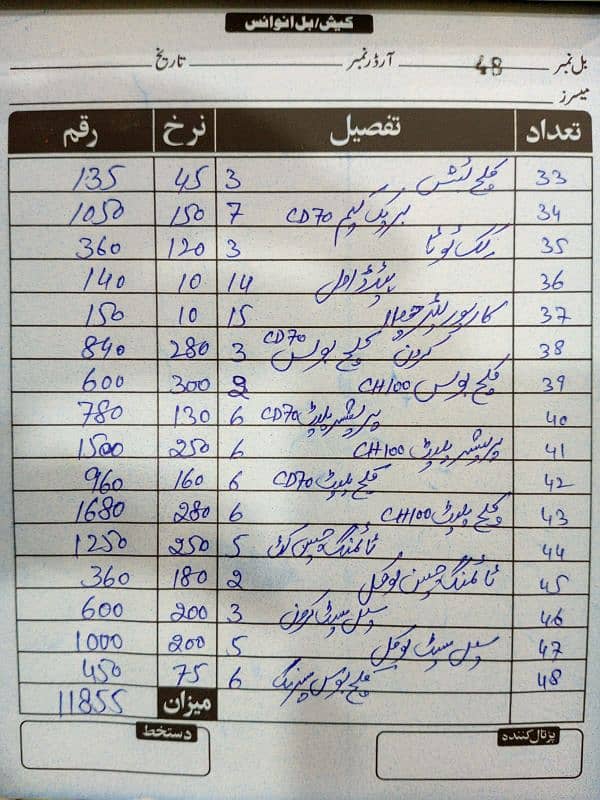 کیش/بل انوائس
بل نمبر 48 آرڈر نمبر تاریخ
میسرز
تعداد تفصیل نرخ رقم
33 کلچ 3 45 135
34 بریک کیم CD70 7 150 1050
35 کک 3 120 360
36 14 10 140
37 15 10 150
38 کلچ بوس کرون CD70 3 280 840
39 کلچ بوس CH100 2 300 600
40 پریشر پلیٹ CD70 6 130 780
41 پریشر پلیٹ CH100 6 250 1500
42 کلچ پلیٹ CD70 6 160 960
43 کلچ پلیٹ CH100 6 280 1680
44 ٹائمنگ چین 5 250 1250
45 ٹائمنگ چین لوکل 2 180 360
46 سیل سیٹ کرون 3 200 600
47 سیل سیٹ لوکل 5 200 1000
48 کلچ بوس سپرنگ 6 75 450
میزان 11855
پڑتال کنندہ دستخط